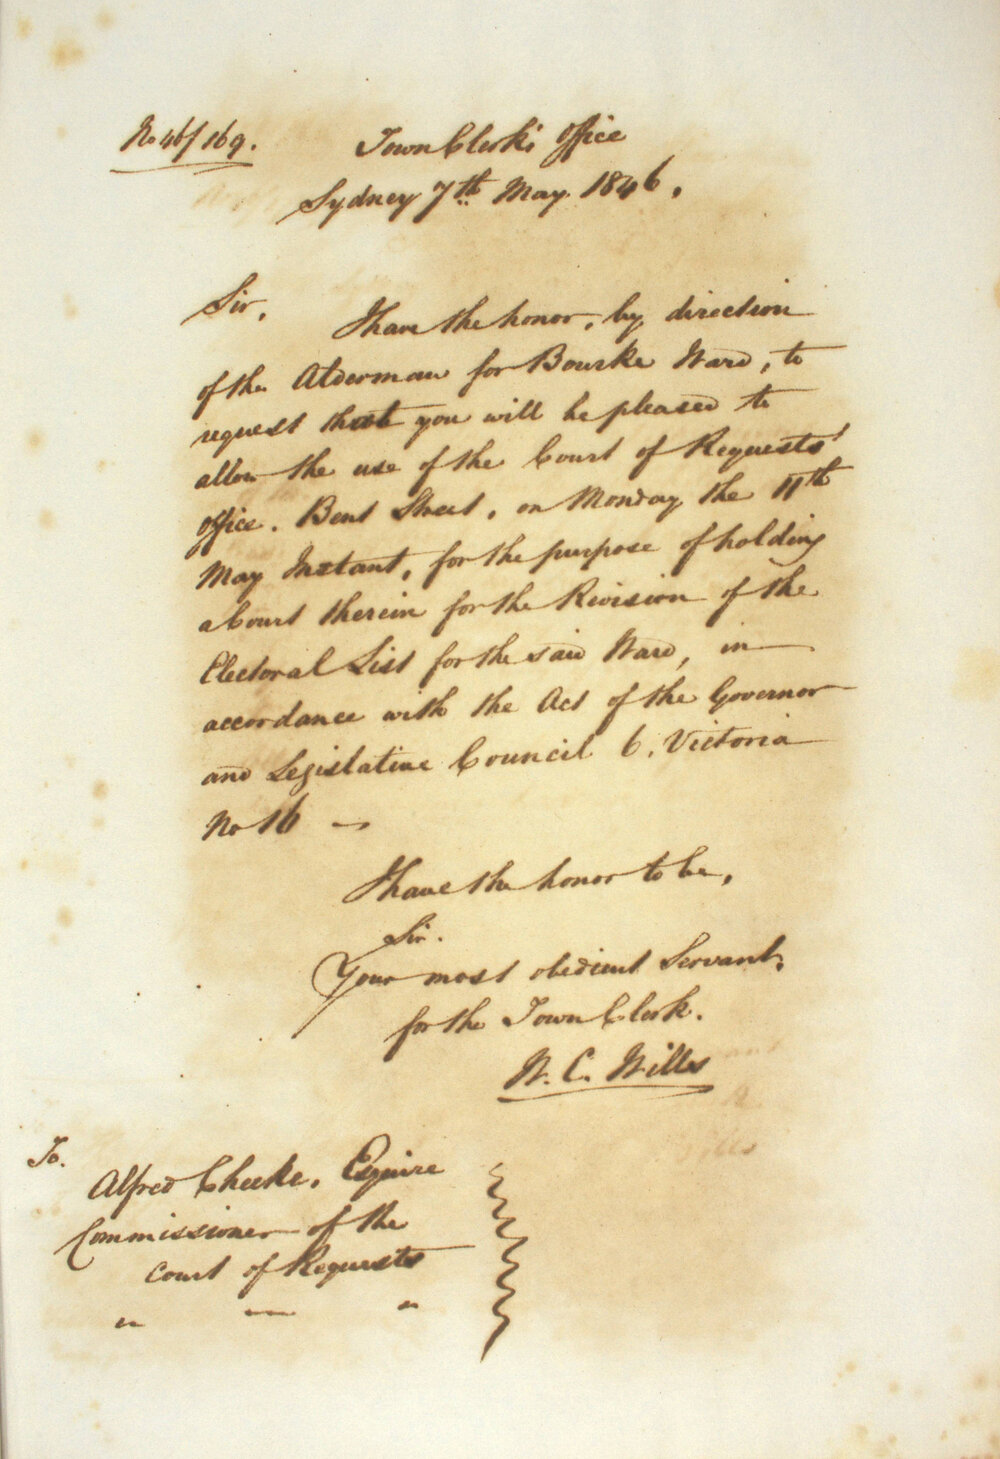 No 46/169.
Town Clerk's Office
Sydney 7th May 1846.
Sir,
I have the honor, by direction
of the Alderman for Bourke Ward, to
request that you will be pleased to
allow the use of the Court of Requests'
Office. Bent Street, on Monday the 11th
May Instant, for the purpose of holding
a Court therein for the Revision of the
Electoral List for the said Ward, in
accordance with the Act of the Governor
and Legislative Council 6. Victoria
No 16 —
I have the honor to be,
Sir.
Your most obedient Servant,
for the Town Clerk.
W. C. Wills
To.
Alfred Cheeke, Esquire
Commissioner of the
Court of Requests
" — "